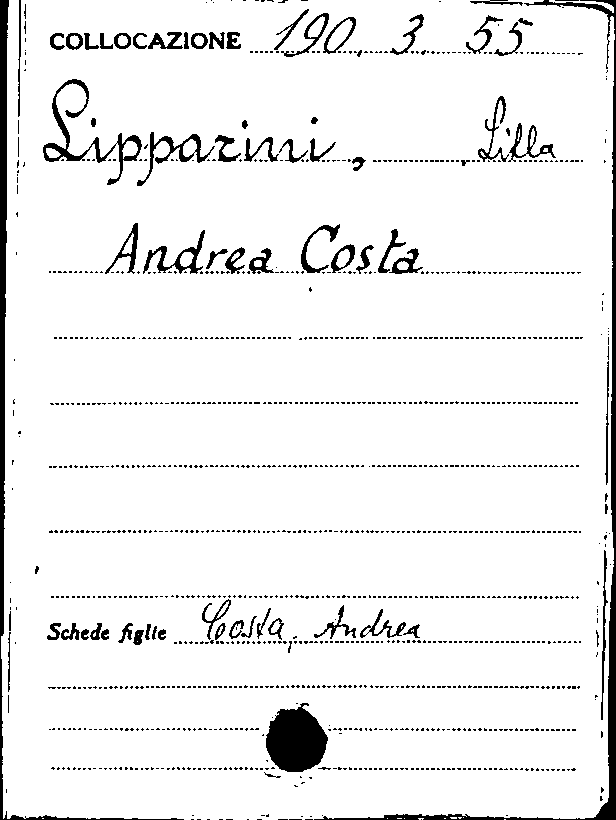 COLLOCAZIONE 190. 3. 55
Lipparini, Lilla
Andrea Costa
Schede figlie Costa, Andrea